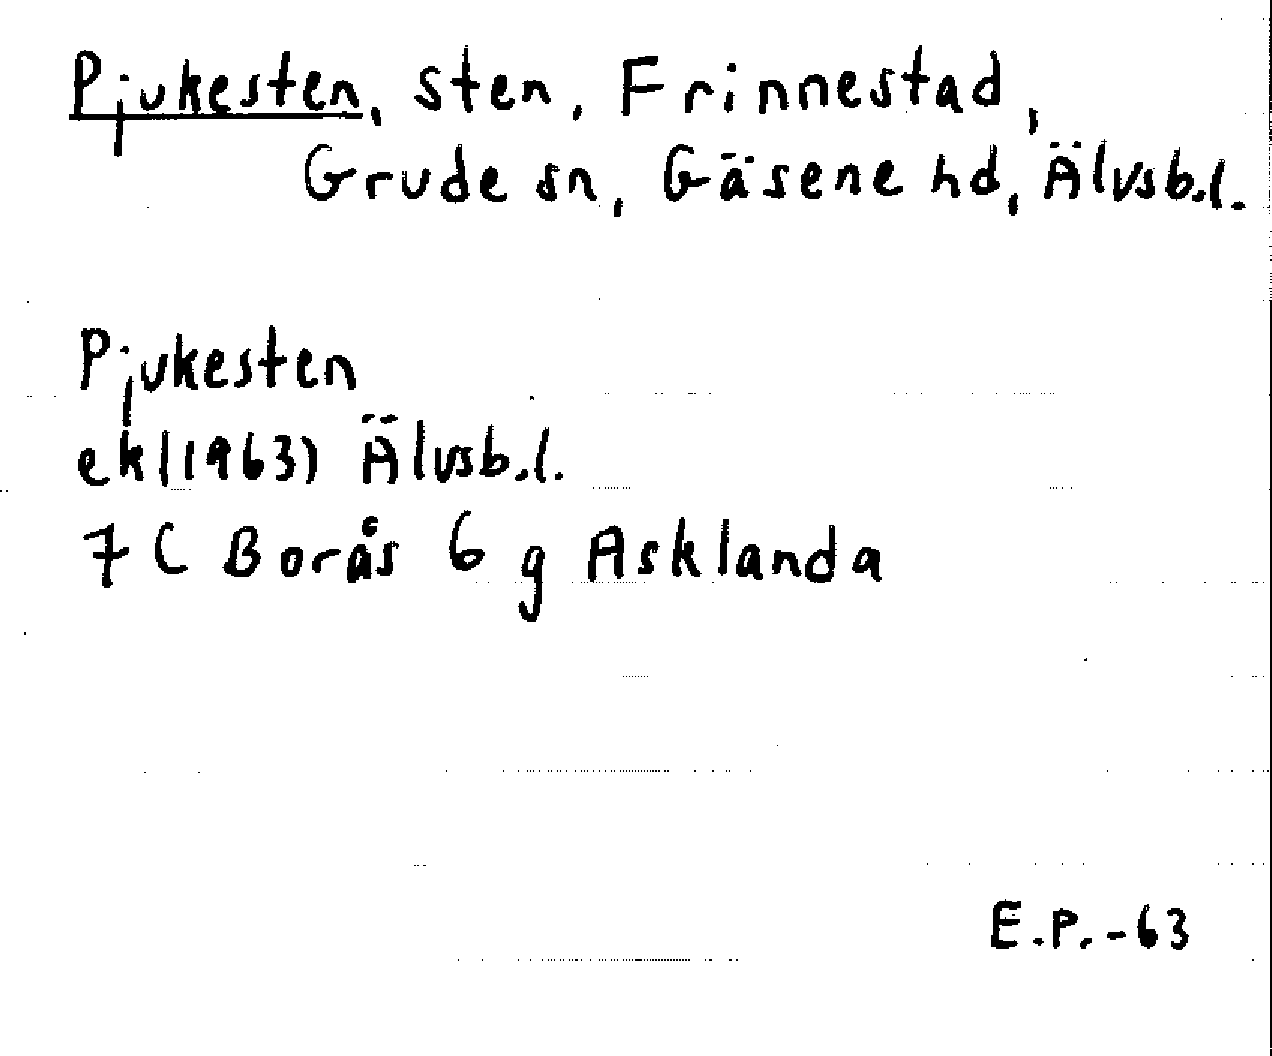 Pjukesten, sten, Frinnestad,
Grude sn, Gäsene hd, Älvsb.l.
Pjukesten
ekl(1963) Älvsb.l.
7 C Borås 6 g Asklanda
E.P.-63